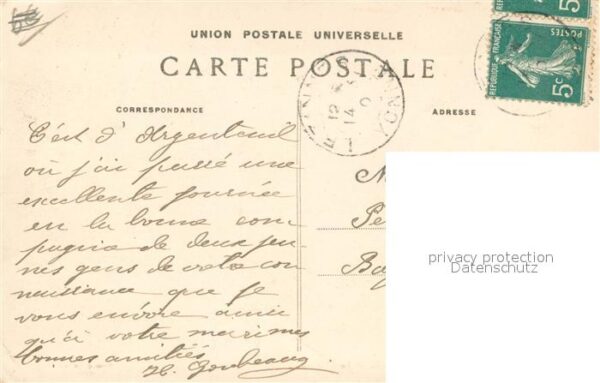 UNION POSTALE UNIVERSELLE
CARTE POSTALE
CORRESPONDANCE
ADRESSE
REPUBLIQUE FRANÇAISE
POSTES
5c
12
14
YONNE
C'est d'Argenteuil
où j'ai passé une
excellente journée
en la bonne com
pagnie de deux jeu
nes gens de votre con
naissance que je
vous envoie ainsi
qu'à votre mari mes
bonnes amitiés
Pe
Ba
privacy protection
Datenschutz